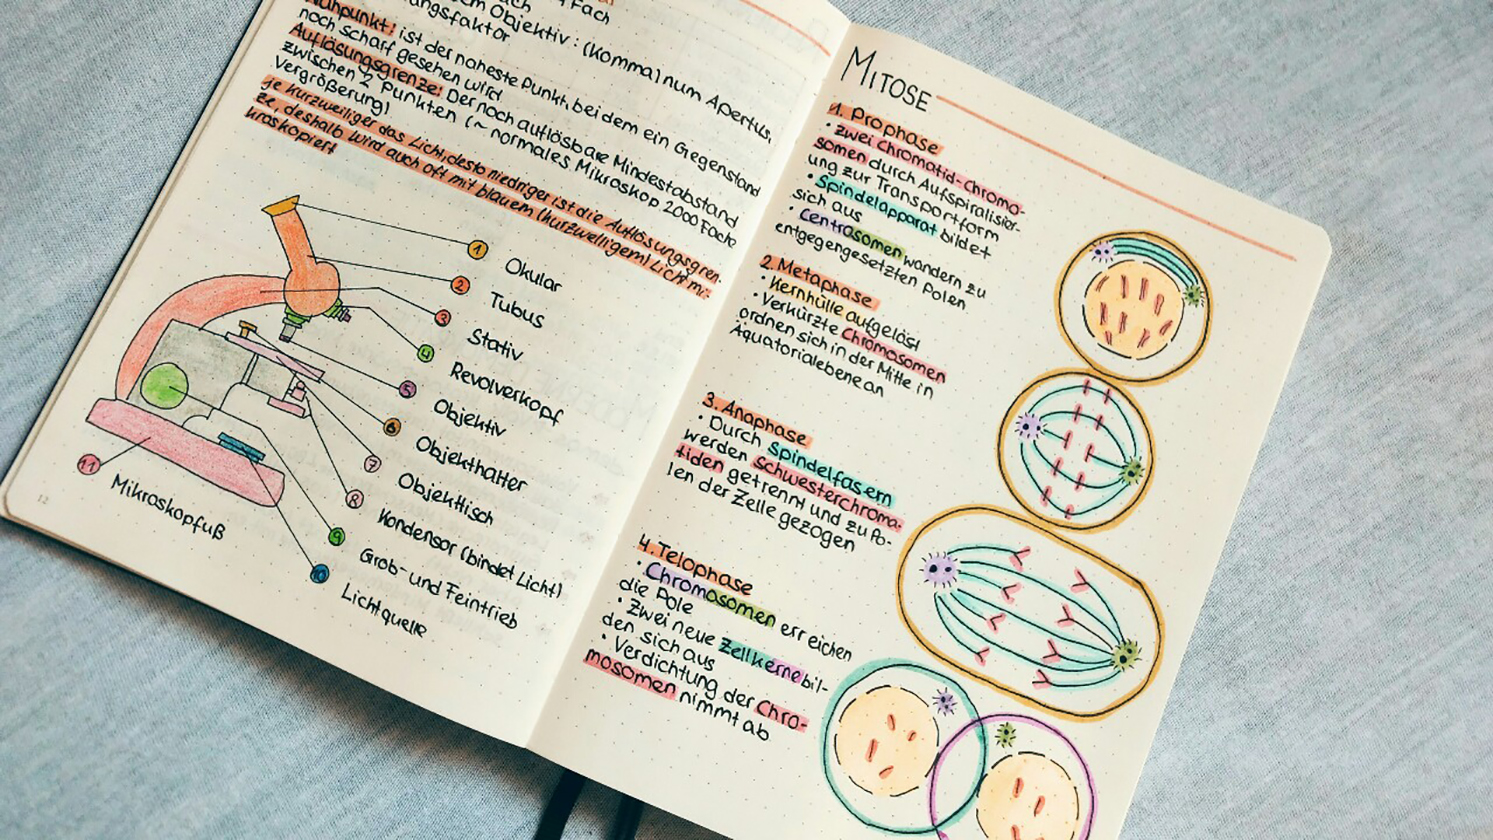 4 Fach
em Objektiv: (Komma) num Apertur,
ungsfaktor
Nahpunkt: ist der naheste Punkt, bei dem ein Gegenstand
noch scharf gesehen wird
Auflösungsgrenze: Der noch auflösbare Mindestabstand
zwischen 2 Punkten (~ normales Mikroskop 2000 Fache
Vergrößerung)
je kurzweiliger das Licht, desto niedriger ist die Auflösungsgren-
ze, deshalb wird auch oft mit blauem (kurzwelligem) Licht mi-
kroskopiert
1 Okular
2 Tubus
3 Stativ
4 Revolverkopf
5 Objektiv
6 Objekthalter
7 Objekttisch
8 Kondensor (bindet Licht)
9 Grob- und Feintrieb
10 Lichtquelle
11 Mikroskopfuß
12
MITOSE
1. Prophase
• zwei Chromatid-Chromo-
somen durch Aufspiralisier-
ung zur Transportform
• Spindelapparat bildet
sich aus
• Centrosomen wandern zu
entgegengesetzten Polen
2. Metaphase
• Kernhülle aufgelöst
• Verkürzte Chromosomen
ordnen sich in der Mitte in
Äquatorialebene an
3. Anaphase
• Durch Spindelfasern
werden Schwesterchroma-
tiden getrennt und zu Po-
len der Zelle gezogen
4. Telophase
• Chromosomen erreichen
die Pole
• Zwei neue Zellkerne bil-
den sich aus
• Verdichtung der Chro-
mosomen nimmt ab